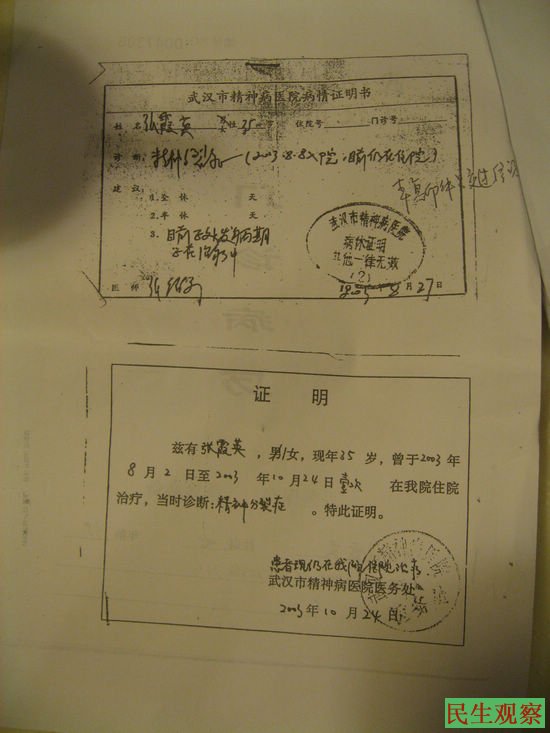 武汉市精神病医院病情证明书
姓名 张霞英 男女性 35 岁 住院号 门诊号
诊断: 精神分裂症 (2003.8.2入院,目前仍在住院)
建议:
1.全休 天
2.半休 天
3. 目前正处发病期
正在治疗中
武汉市精神病医院
病休证明
其他一律无效
(2)
医师
8月27日
证 明
兹有张霞英,男/女,现年35岁,曾于2003年
8月2日至2003年10月24日壹次 在我院住院
治疗,当时诊断:精神分裂症。特此证明。
患者现仍在我院住院治疗
武汉市精神病医院医务处
2003年10月24日
民生观察